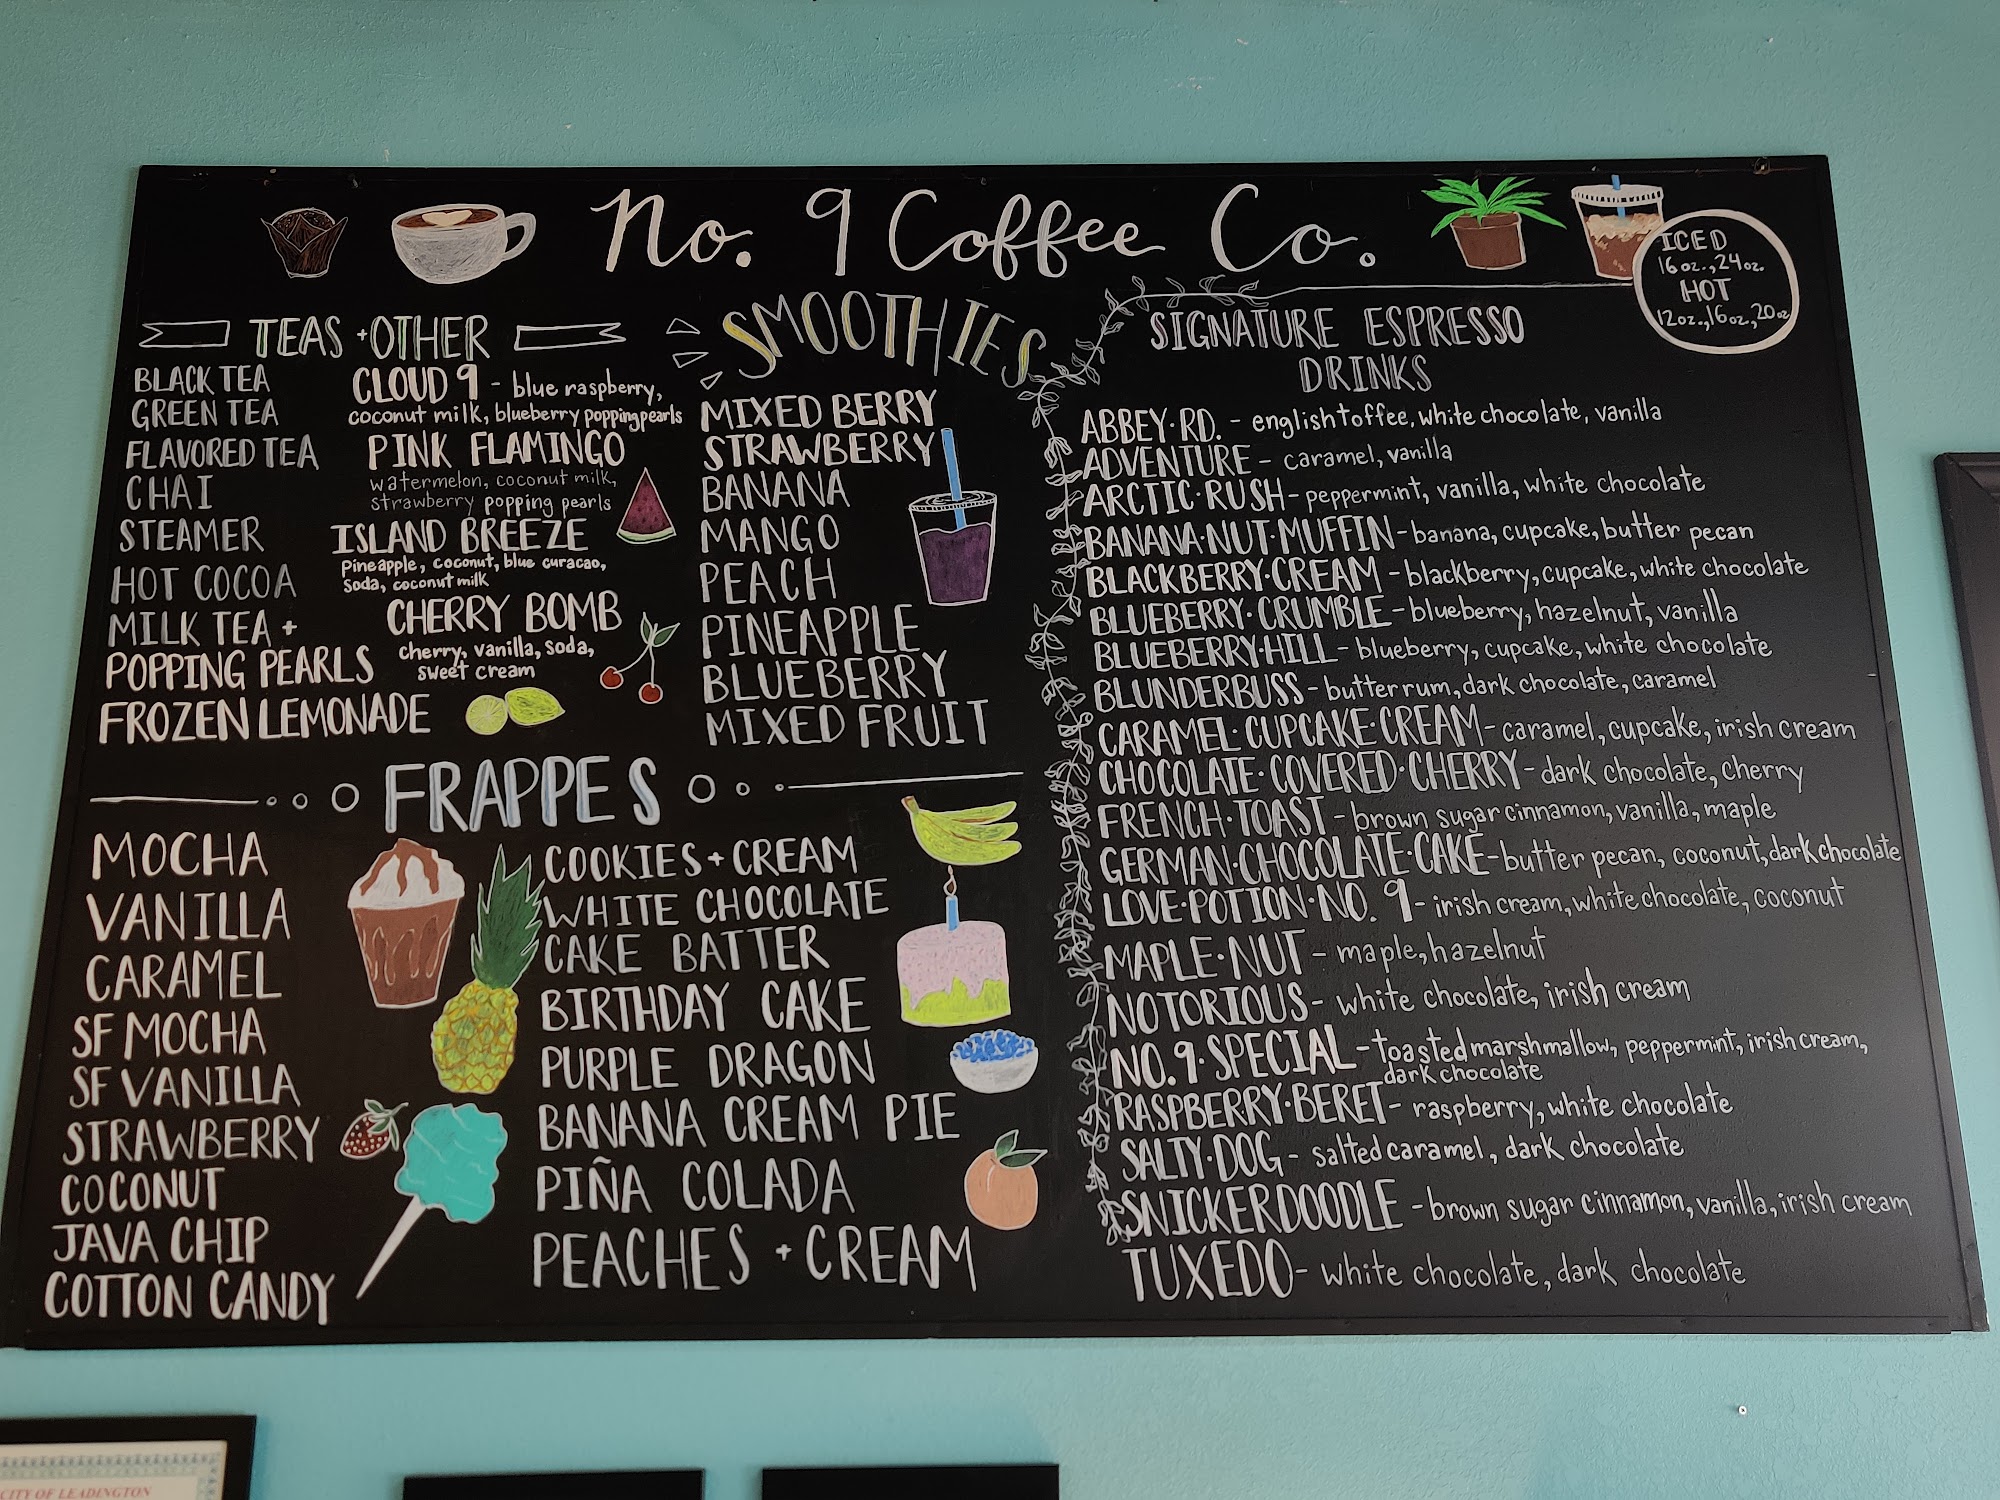 No. 9 Coffee Co.
ICED
16oz., 24oz.
HOT
12oz., 16oz., 20oz
TEAS + OTHER
BLACK TEA
GREEN TEA
FLAVORED TEA
CHAI
STEAMER
HOT COCOA
MILK TEA +
POPPING PEARLS
FROZEN LEMONADE
CLOUD 9 - blue raspberry,
coconut milk, blueberry popping pearls
PINK FLAMINGO
watermelon, coconut milk,
strawberry popping pearls
ISLAND BREEZE
Pineapple, coconut, blue curacao,
soda, coconut milk
CHERRY BOMB
cherry, vanilla, soda,
sweet cream
SMOOTHIES
MIXED BERRY
STRAWBERRY
BANANA
MANGO
PEACH
PINEAPPLE
BLUEBERRY
MIXED FRUIT
FRAPPES
MOCHA
VANILLA
CARAMEL
SF MOCHA
SF VANILLA
STRAWBERRY
COCONUT
JAVA CHIP
COTTON CANDY
COOKIES + CREAM
WHITE CHOCOLATE
CAKE BATTER
BIRTHDAY CAKE
PURPLE DRAGON
BANANA CREAM PIE
PIÑA COLADA
PEACHES + CREAM
SIGNATURE ESPRESSO
DRINKS
ABBEY·RD. - english toffee, white chocolate, vanilla
ADVENTURE - caramel, vanilla
ARCTIC·RUSH - peppermint, vanilla, white chocolate
BANANA·NUT·MUFFIN - banana, cupcake, butter pecan
BLACKBERRY·CREAM - blackberry, cupcake, white chocolate
BLUEBERRY·CRUMBLE - blueberry, hazelnut, vanilla
BLUEBERRY·HILL - blueberry, cupcake, white chocolate
BLUNDERBUSS - butter rum, dark chocolate, caramel
CARAMEL·CUPCAKE·CREAM - caramel, cupcake, irish cream
CHOCOLATE·COVERED·CHERRY - dark chocolate, cherry
FRENCH·TOAST - brown sugar cinnamon, vanilla, maple
GERMAN·CHOCOLATE·CAKE - butter pecan, coconut, dark chocolate
LOVE·POTION·NO. 9 - irish cream, white chocolate, coconut
MAPLE·NUT - maple, hazelnut
NOTORIOUS - white chocolate, irish cream
NO. 9·SPECIAL - toasted marshmallow, peppermint, irish cream,
dark chocolate
RASPBERRY·BERET - raspberry, white chocolate
SALTY·DOG - salted caramel, dark chocolate
SNICKERDOODLE - brown sugar cinnamon, vanilla, irish cream
TUXEDO - white chocolate, dark chocolate
CITY OF LEADINGTON